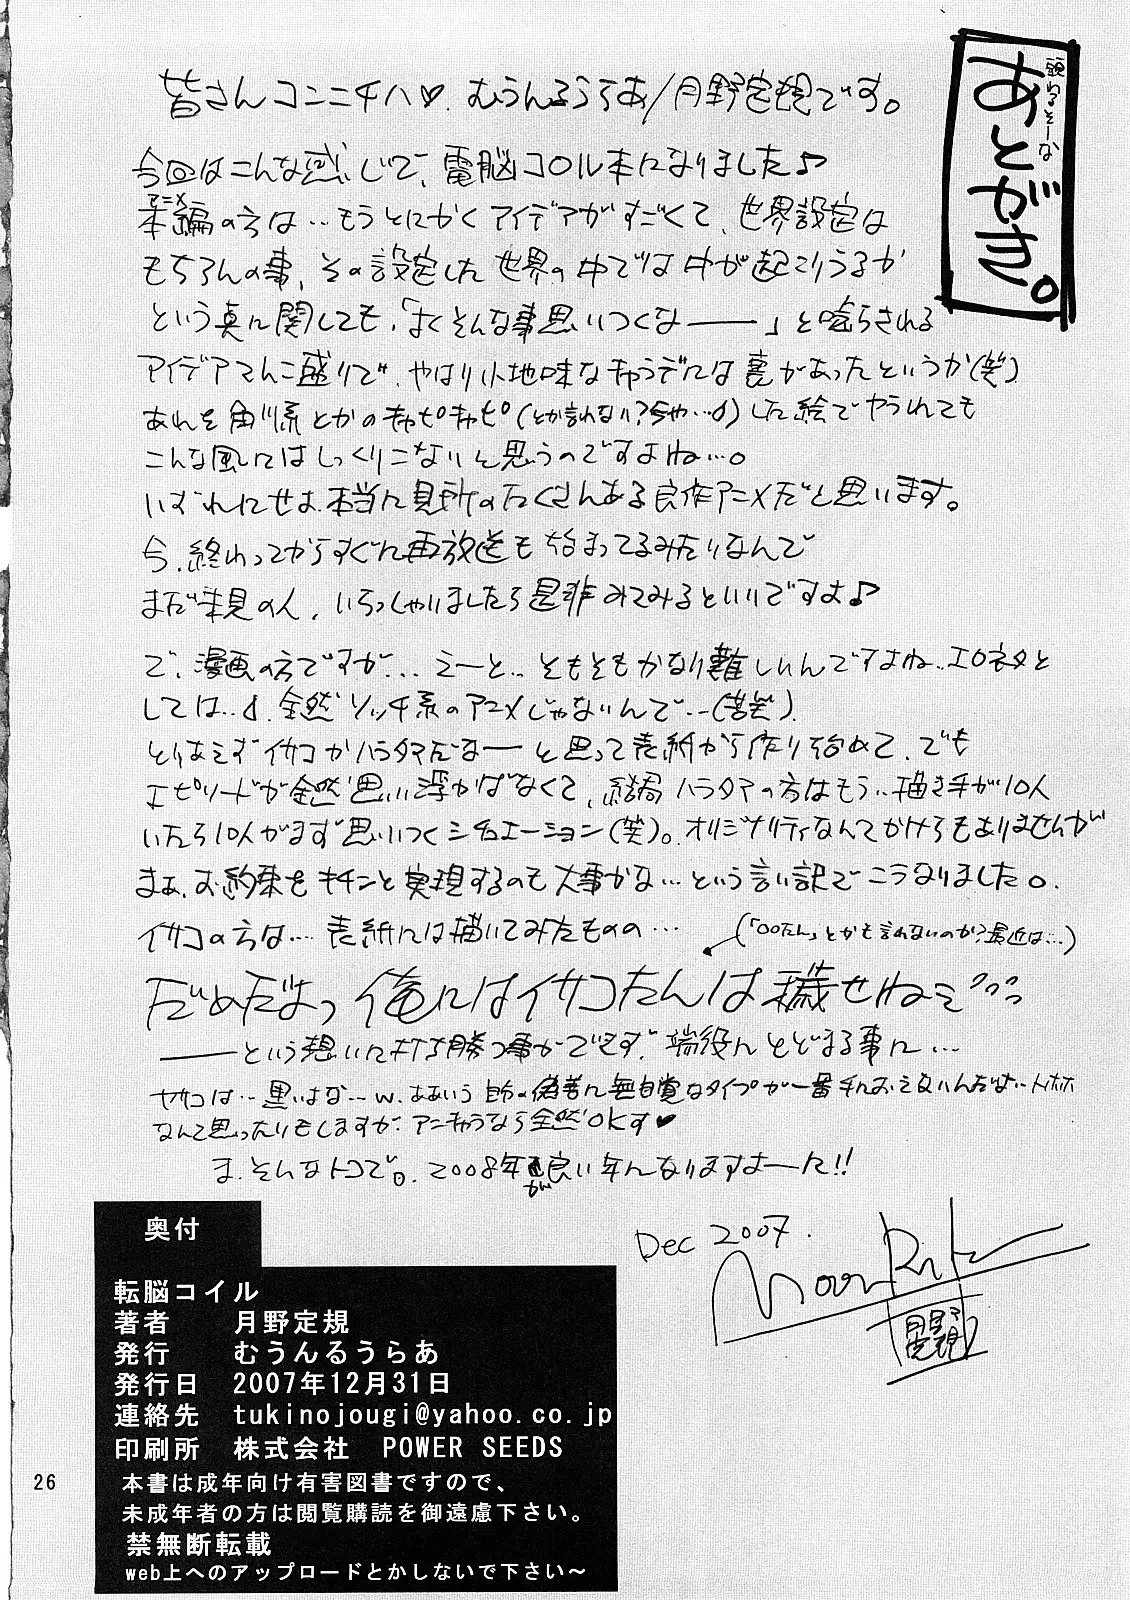 頭わるそーな
あとがき。
皆さんコンニチハ♡. むうんるうらあ/月野定規です。
今回はこんな感じで、電脳コイル本になりました♪
アニメ
本編の方は…もうとにかくアイデアがすごくて、世界設定は
もちろんの事、その設定した世界の中では何が起こりうるか
という点に関しても、「よくそんな事思いつくなーー」と唸らされる
アイデアてんこ盛りで、やはり小地味なキャラデには裏があったというか(笑)
あれを角川系とかのキャピキャピ(とか言わない?ちゃ…)した絵でやられても
こんな風にはしっくりこないと思うのですよね…。
いずれにせよ、本当に見所のたくさんある良作アニメだと思います。
今、終わってからすぐに再放送も始まってるみたいなんで
まだ未見の人、いらっしゃいましたら是非みてみるといいですよ♪
で、漫画の方ですが…、えーと…そもそもかなり難しいんですよね…エロネタと
しては…。全然ソッチ系のアニメじゃないんで…(苦笑)
とりあえずイサコかハラタマだなーーと思って表紙から作り始めて、でも
エピソードが全然思い浮かばなくて、結局ハラタマの方はもう…描き手が10人
いたら10人がまず思いつくシチュエーション(笑)。オリジナリティなんてかけらもありませんが
まぁ、お約束をキチンと実現するのも大事かな…という言い訳でこうなりました。
イサコの方は…表紙には描いてみたものの…
(「○○たん」とかも言わないのか?最近は…)
だめだよっ俺にはイサコたんは穢せねぇ
――という想いに打ち勝つ事ができず、端役にとどまる事に…
ヤサコは…黒いよな…w. ああいう自分の偽善に無自覚なタイプが一番手におえないんだよ…トホホ
なんて思ったりもしますが、アニキャラなら全然OKす♥
ま、そんなトコで。2008年が良い年になりますよーーに!!
Dec 2007.
月野定規
奥付
転脳コイル
著者 月野定規
発行 むうんるうらあ
発行日 2007年12月31日
連絡先 tukinojougi@yahoo.co.jp
印刷所 株式会社 POWER SEEDS
本書は成年向け有害図書ですので、
未成年者の方は閲覧購読を御遠慮下さい。
禁無断転載
web上へのアップロードとかしないで下さい～
26